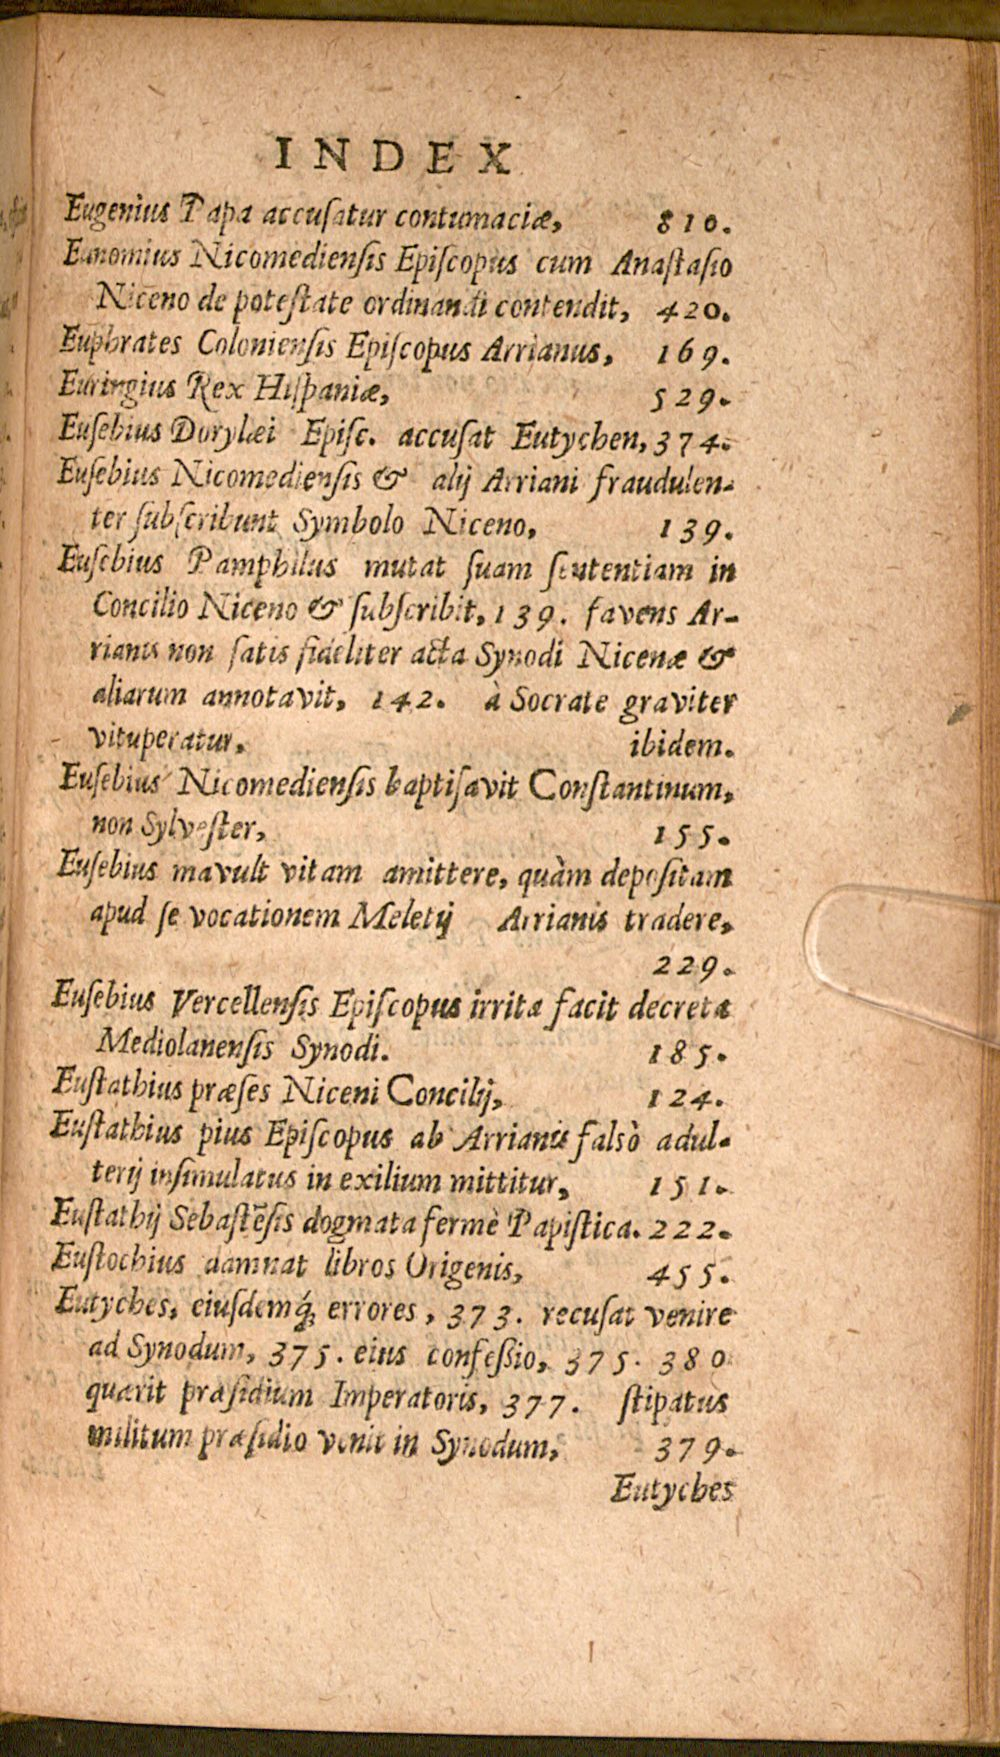 INDEX
Eugenius Papa accusatur contumaciæ, 810.
Eunomius Nicomediensis Episcopus cum Anastasio
Niceno de potestate ordinandi contendit, 420.
Euphrates Coloniensis Episcopus Arrianus, 169.
Euringius Rex Hispaniæ, 529.
Eusebius Dorylæi Episc. accusat Eutychen, 374.
Eusebius Nicomediensis & alij Arriani fraudulen-
ter subscribunt Symbolo Niceno, 139.
Eusebius Pamphilus mutat suam sententiam in
Concilio Niceno & subscribit, 139. favens Ar-
rianis non satis fideliter acta Synodi Nicenæ &
aliarum annotavit, 142. à Socrate graviter
vituperatur, ibidem.
Eusebius Nicomediensis baptisavit Constantinum,
non Sylvester, 155.
Eusebius mavult vitam amittere, quàm depositam
apud se vocationem Meletij Arrianis tradere,
229.
Eusebius Vercellensis Episcopus irrita facit decreta
Mediolanensis Synodi. 185.
Eustathius præses Niceni Concilij, 124.
Eustathius pius Episcopus ab Arrianis falsò adul-
terij insimulatus in exilium mittitur, 151.
Eustathij Sebastēsis dogmata fermè Papistica. 222.
Eustochius damnat libros Origenis, 455.
Eutyches, eiusdemq́; errores, 373. recusat venire
ad Synodum, 375. eius confeßio, 375. 380
quærit præsidium Imperatoris, 377. stipatus
militum præsidio venit in Synodum, 379.
Eutyches